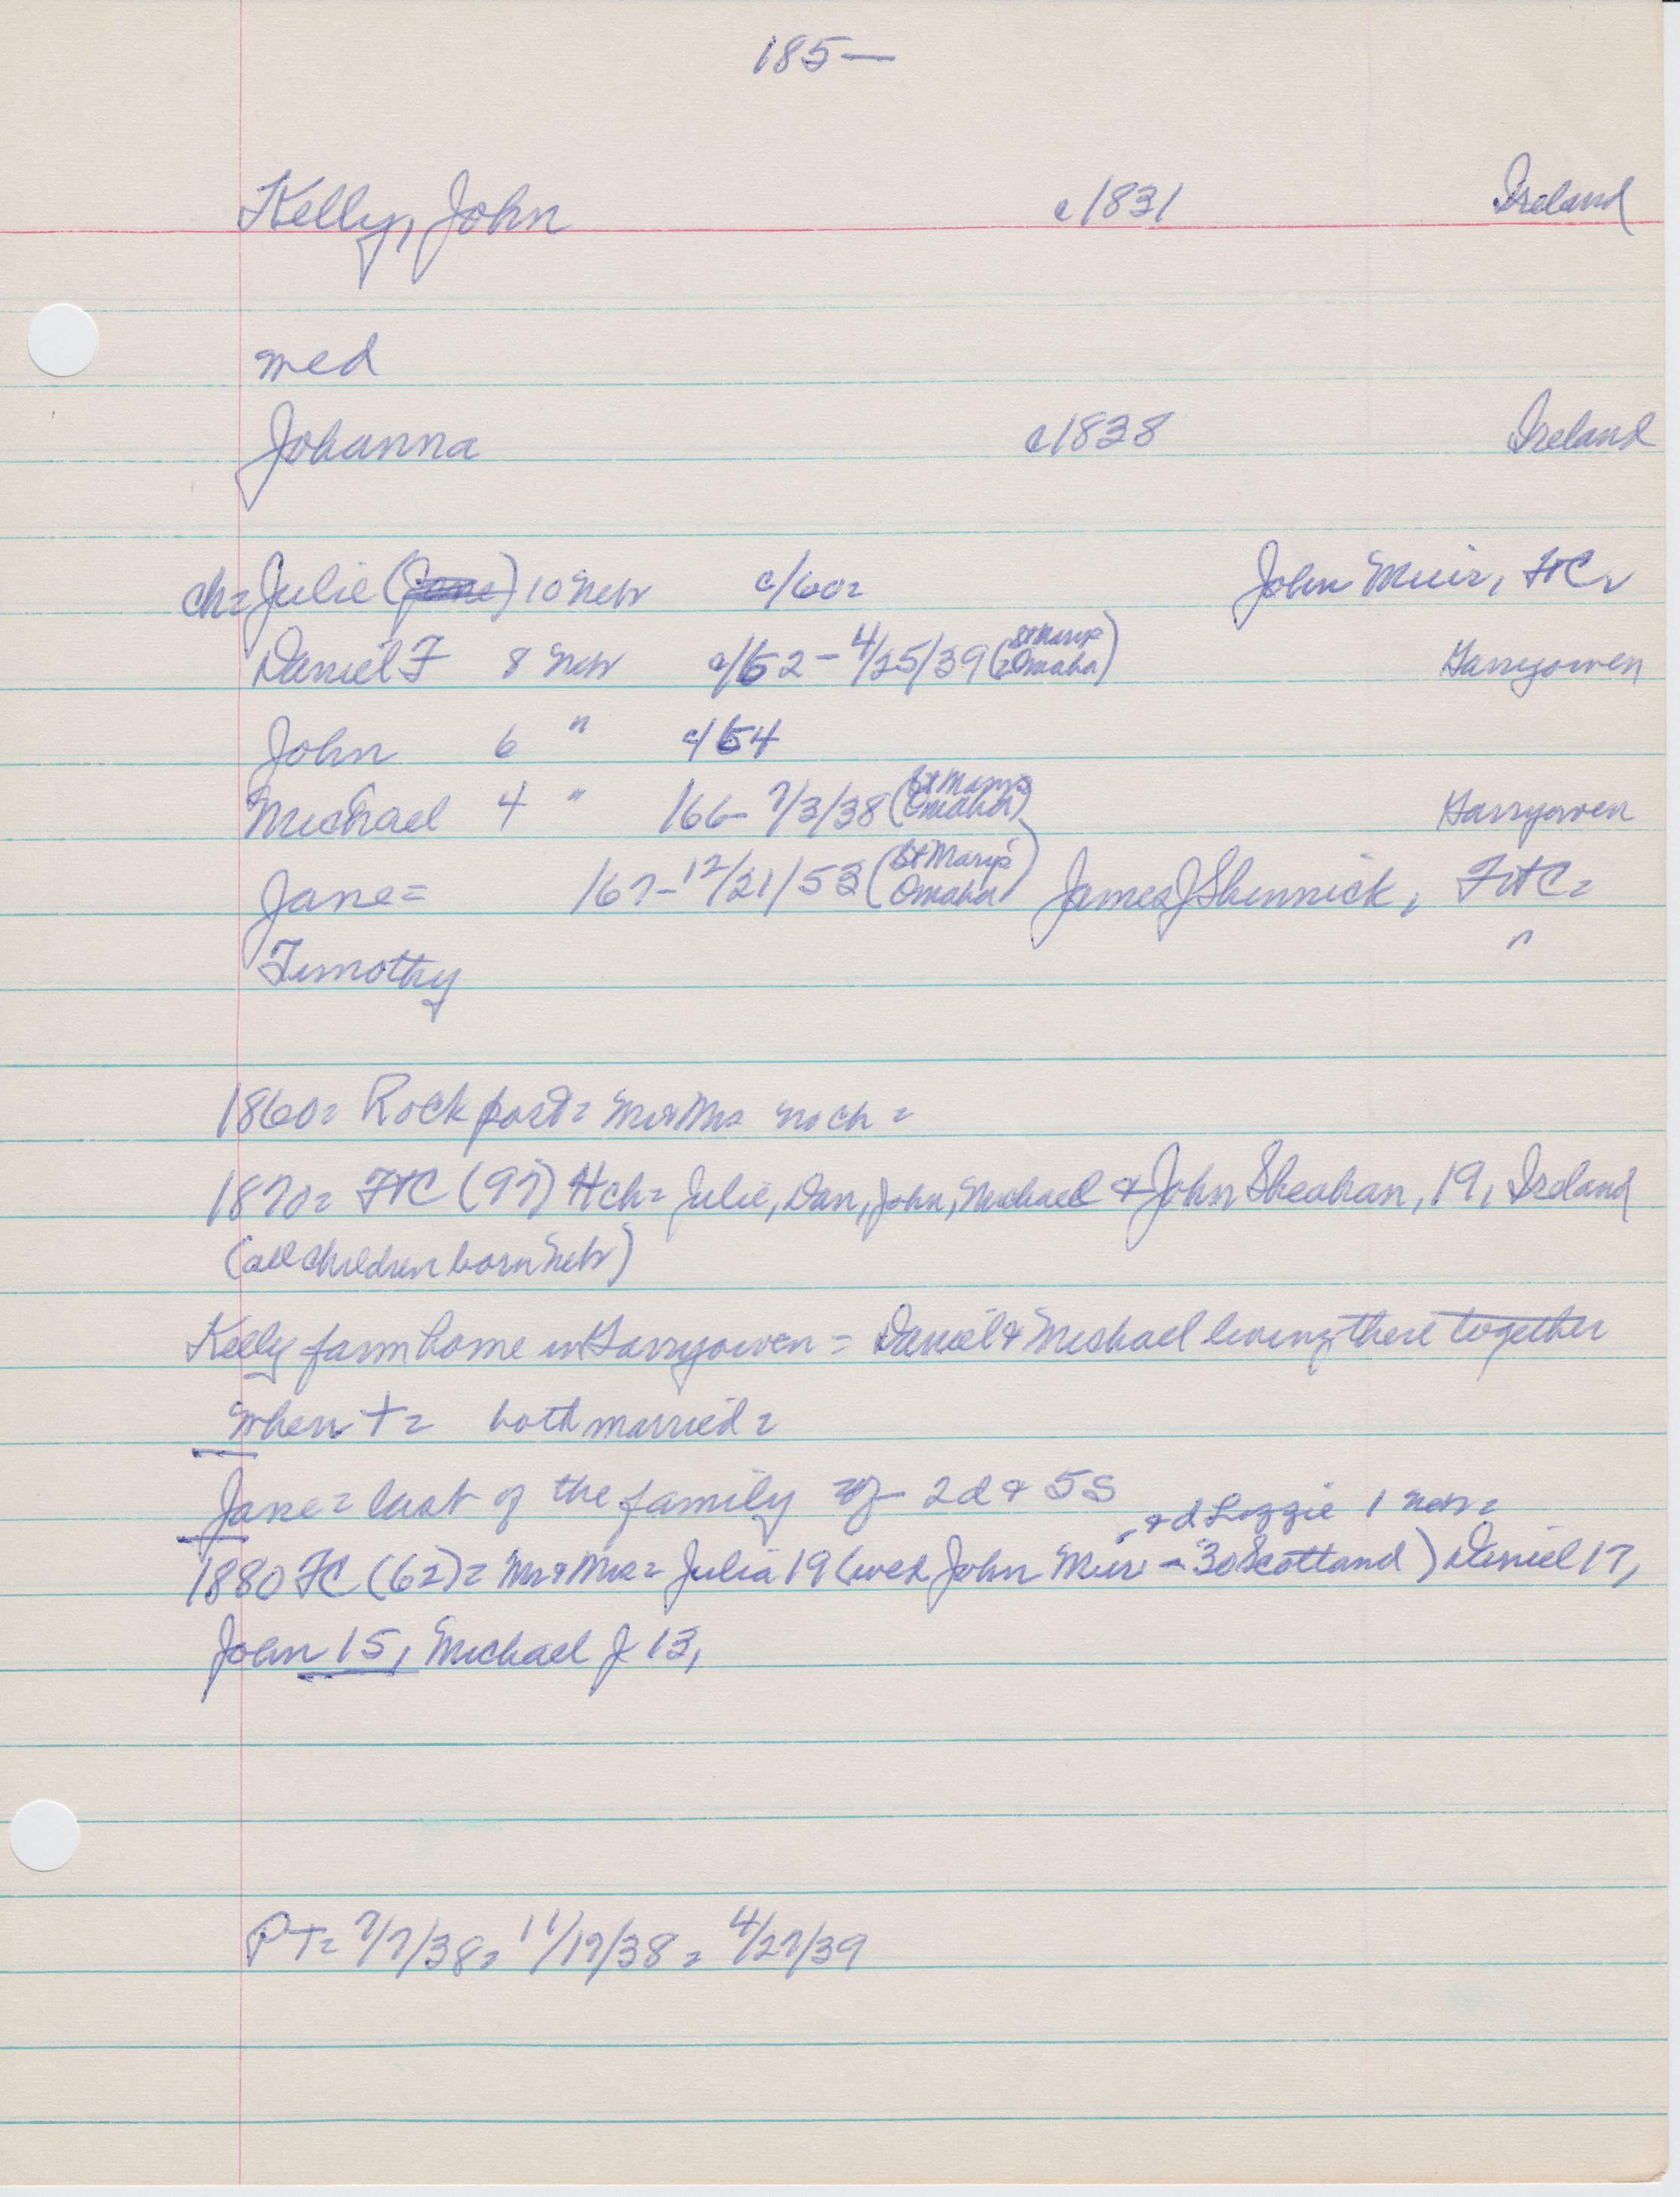 185—
Kelly, John c1831 Ireland
med
Johanna c1838 Ireland
ch= Julie (Jane) 10 Neb c/60= John Muir, FtC=
Daniel F 8 Neb c/62 - 4/25/39 (St Mary's Omaha) Garryowen
John 6 " c/64
Michael 4 " /66- 7/3/38 (St Mary's Omaha) Garryowen
Jane= /67-12/21/53 (St Mary's Omaha) James J Shinnick, FtC=
Timothy "
1860= Rockport= Mr & Mrs no ch=
1870= FtC (97) 4ch= Julie, Dan, John, Michael & John Sheahan, 19, Ireland
(all children born Neb)
Kelly farm home in Garryowen = Daniel & Michael living there together
when += both married=
Jane= last of the family of 2d & 5s
, & d Lizzie 1 Neb=
1880 FC (62)= Mr & Mrs= Julia 19 (wed John Muir - 30 Scotland) Daniel 17,
John 15, Michael J 13,
PT= 7/7/38= 11/17/38= 4/27/39